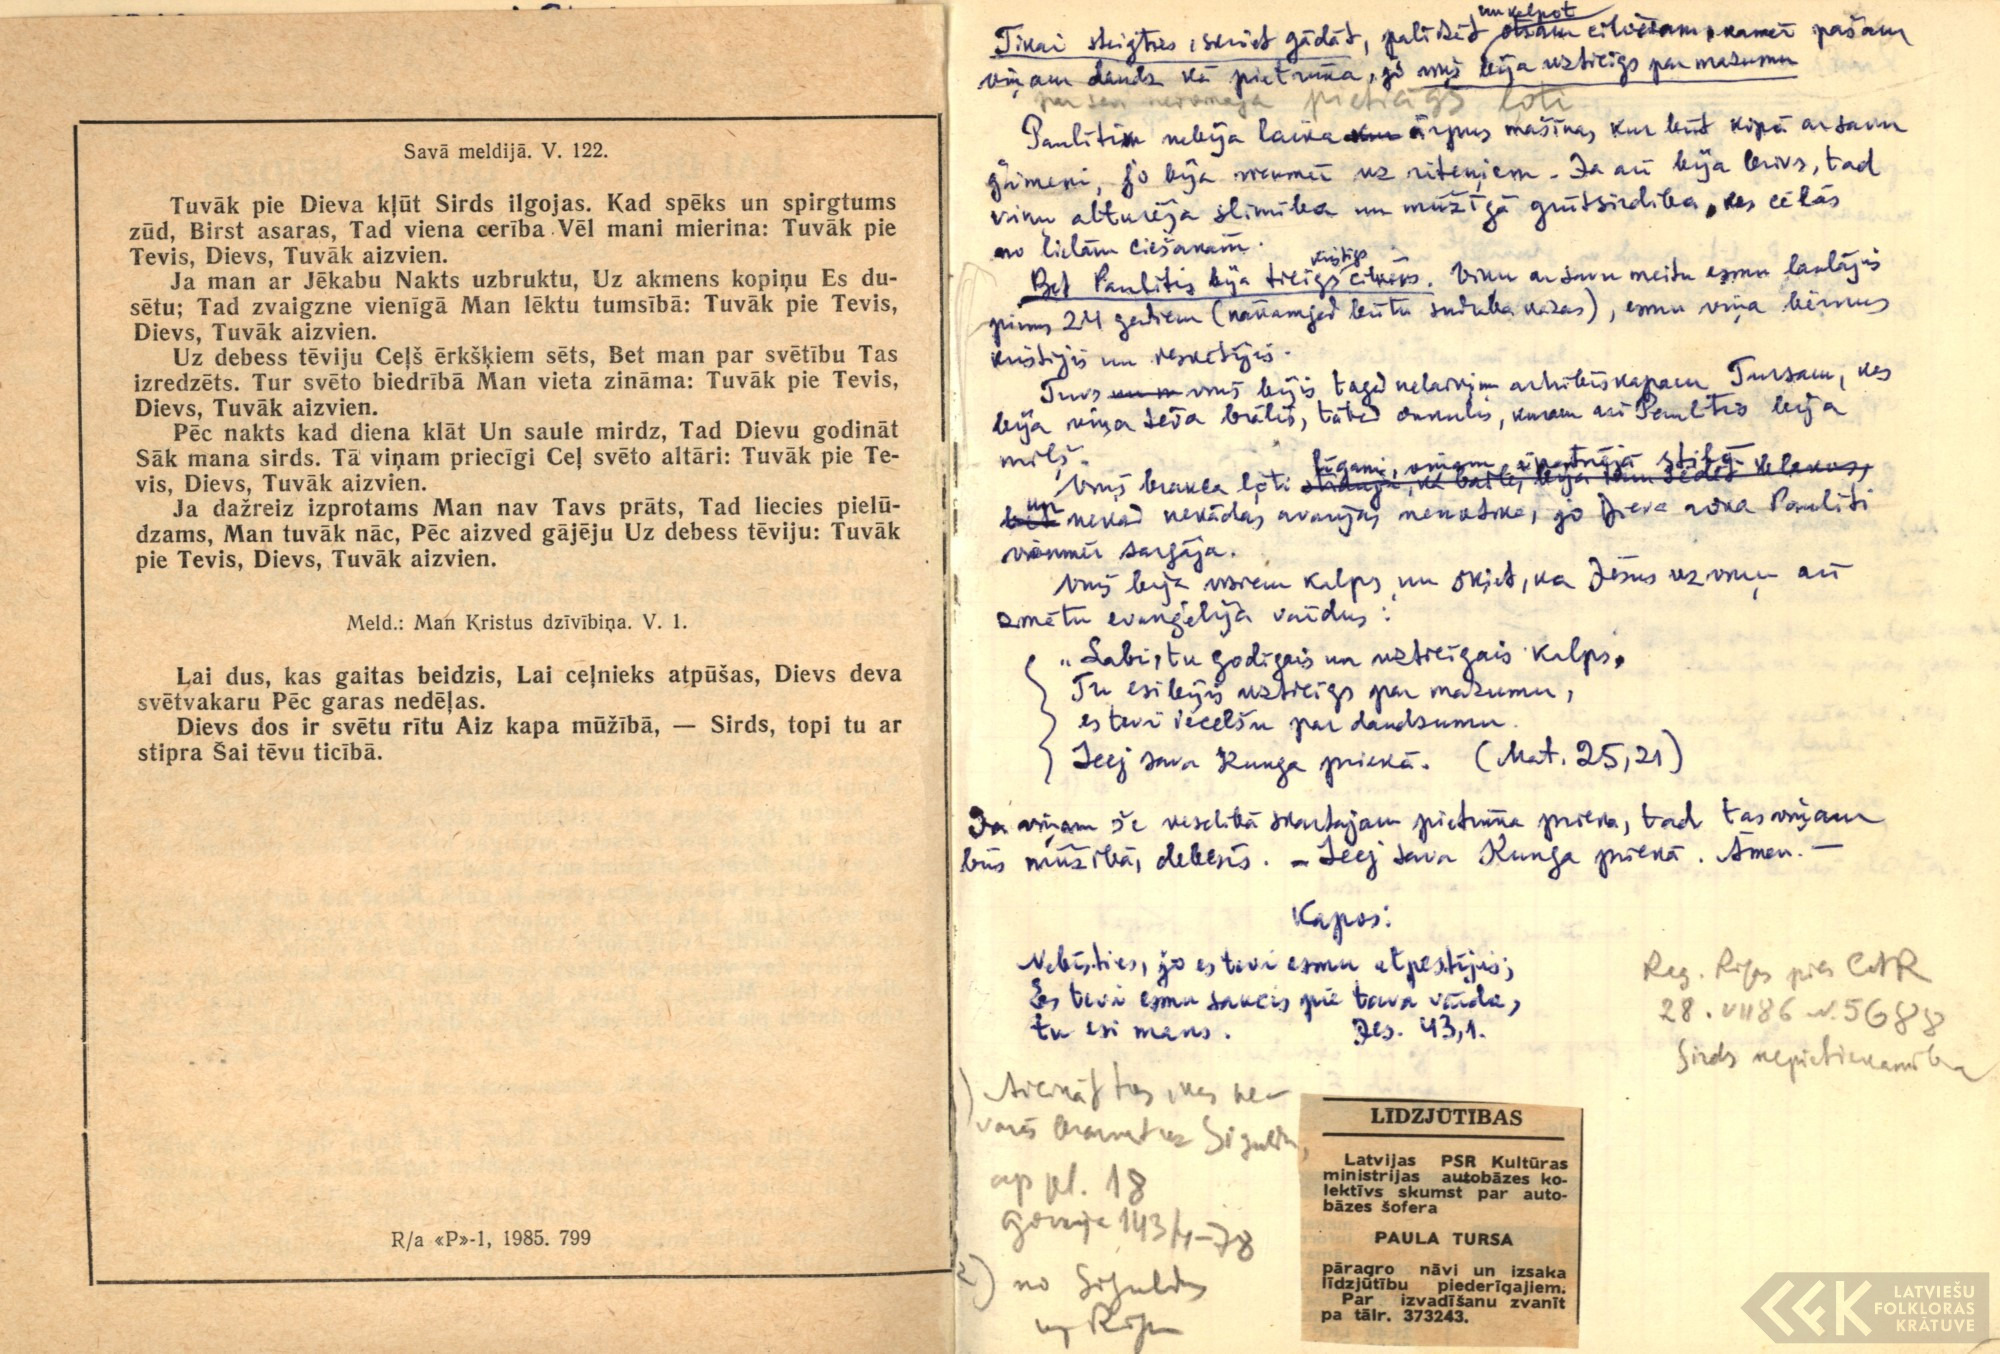 Savā meldijā. V. 122.
Tuvāk pie Dieva kļūt Sirds ilgojas. Kad spēks un spirgtums
zūd, Birst asaras, Tad viena cerība Vēl mani mierina: Tuvāk pie
Tevis, Dievs, Tuvāk aizvien.
Ja man ar Jēkabu Nakts uzbruktu, Uz akmens kopiņu Es du-
sētu; Tad zvaigzne vienīgā Man lēktu tumsībā: Tuvāk pie Tevis,
Dievs, Tuvāk aizvien.
Uz debess tēviju Ceļš ērkšķiem sēts, Bet man par svētību Tas
izredzēts. Tur svēto biedrībā Man vieta zināma: Tuvāk pie Tevis,
Dievs, Tuvāk aizvien.
Pēc nakts kad diena klāt Un saule mirdz, Tad Dievu godināt
Sāk mana sirds. Tā viņam priecīgi Ceļ svēto altāri: Tuvāk pie Te-
vis, Dievs, Tuvāk aizvien.
Ja dažreiz izprotams Man nav Tavs prāts, Tad liecies pielū-
dzams, Man tuvāk nāc, Pēc aizved gājēju Uz debess tēviju: Tuvāk
pie Tevis, Dievs, Tuvāk aizvien.
Meld.: Man Kristus dzīvībiņa. V. 1.
Lai dus, kas gaitas beidzis, Lai ceļnieks atpūšas, Dievs deva
svētvakaru Pēc garas nedēļas.
Dievs dos ir svētu rītu Aiz kapa mūžībā, — Sirds, topi tu ar
stipra Šai tēvu ticībā.
R/a «P»-1, 1985. 799
un kalpot
Tikai steigties, skriet gādāt, palīdzēt citiem cilvēkam, kamēr pašam
viņam daudz kā pietrūka, jo viņš bija uzticīgs par mazumu
pieticīgs ļoti
Paulītim nebija laika ārpus mašīnas, kur būt kopā ar savu
ģimeni, jo bija vienmēr uz riteņiem. Ja arī bija brīvs, tad
viņu atturēja slimība un mūžīgā grūtsirdība, kas cēlās
no lielām ciešanām.
kristīgs
Bet Paulītis bija ticīgs cilvēks. Viņu ar savu meitu esmu laulājis
pirms 24 gadiem (nākamgad būtu sudraba kāzas), esmu viņa bērnus
kristījis un iesvētījis.
Tuvs viņš bijis tagad nelaiķim arhibīskapam Tursam, kas
bija viņa tēva brālis, tātad onkulis, kuram arī Paulītis bija
mīļš.
Viņš brauca ļoti
un nekad nekādas avārijas nenotika, jo Dieva roka Paulīti
vienmēr sargāja.
Viņš bija visiem kalps un šķiet, ka Jēzus uz viņu arī
zīmētu evaņģēlija vārdus:
„Labi, tu godīgais un uzticīgais kalps,
Tu esi bijis uzticīgs par mazumu,
es tevi iecelšu par daudzumu.
Ieej sava Kunga priekā. (Mat. 25,21)
Ja viņam še veselībā skartajam pietrūka prieka, tad tas viņam
būs mūžībā, debesīs. – Ieej sava Kunga priekā. Āmen. –
Kapos:
Nebīsties, jo es tevi esmu atpestījis;
Es tevi esmu saucis pie tava vārda,
tu esi mans. Jes. 43,1.
Reg. Rīgas pils CAR
28. VII 86 N. 5688
Sirds nepietiekamība
1) Aicināt tos, kas ne-
varēs braukt uz Siguldu,
ap pl. 18
143/4-78
2) no Siguldas
uz Rīgu
LĪDZJŪTĪBAS
Latvijas PSR Kultūras
ministrijas autobāzes ko-
lektīvs skumst par auto-
bāzes šofera
PAULA TURSA
pāragro nāvi un izsaka
līdzjūtību piederīgajiem.
Par izvadīšanu zvanīt
pa tālr. 373243.
LATVIEŠU
FOLKLORAS
KRĀTUVE